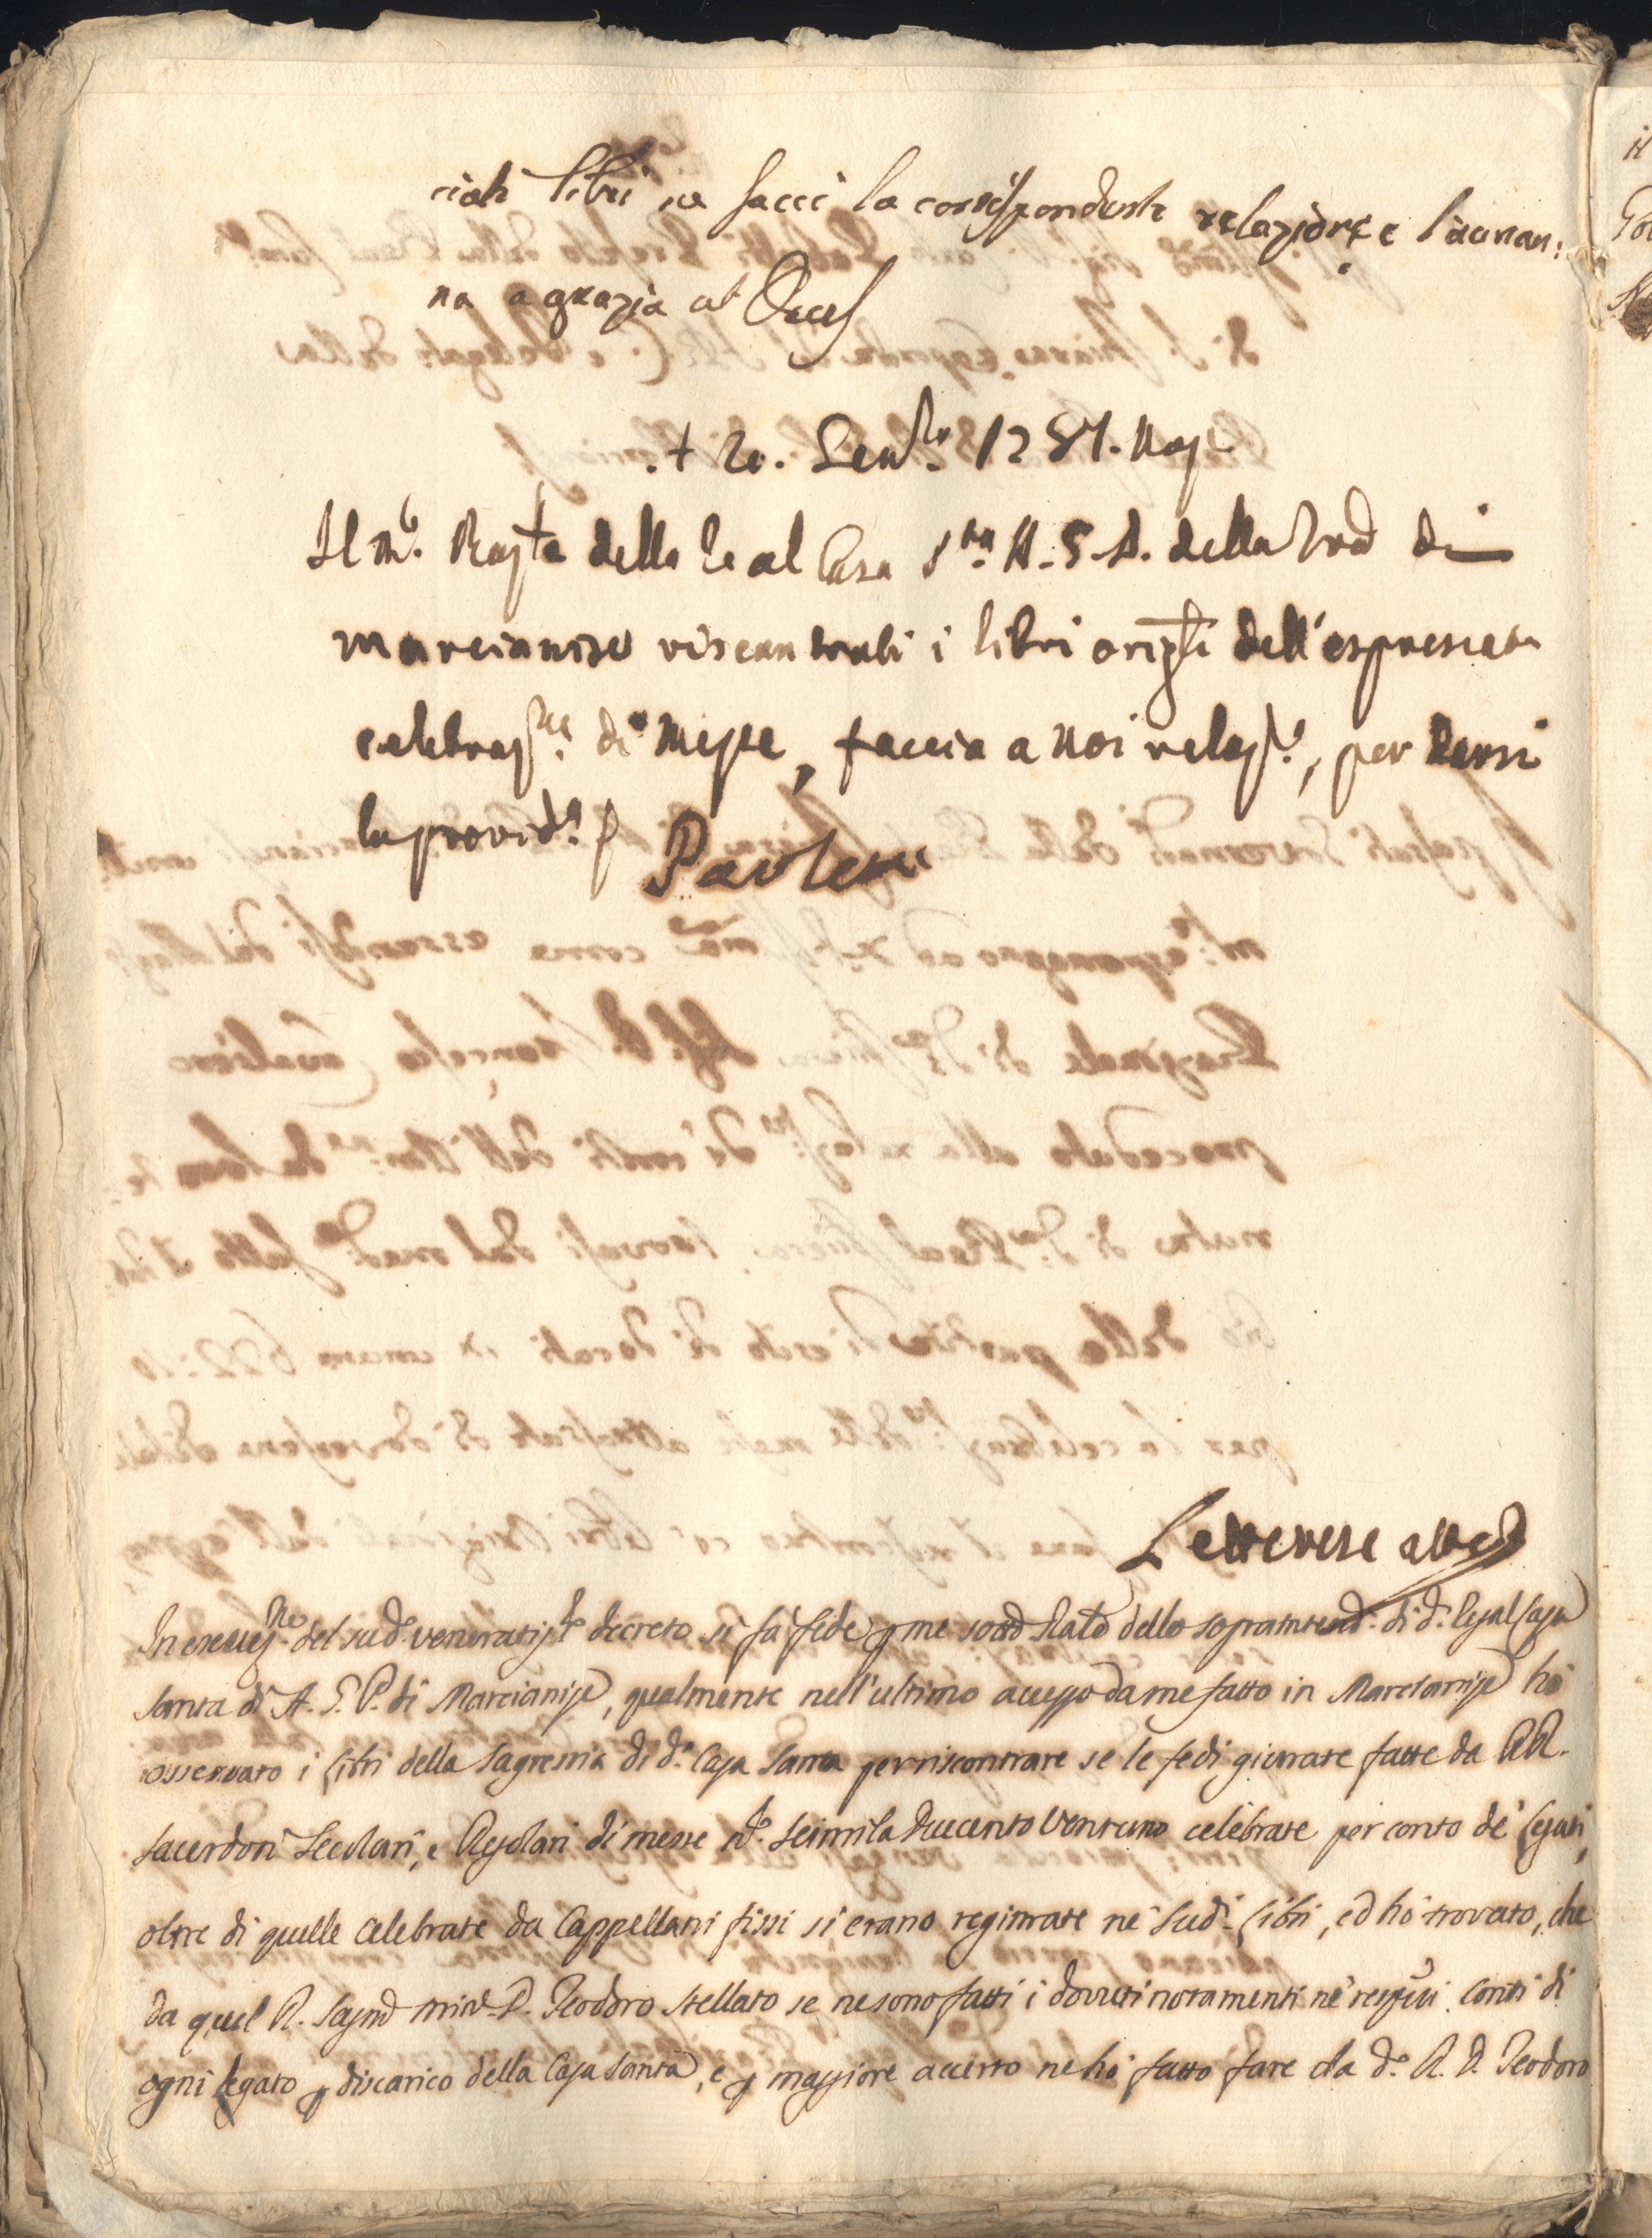 ciati libri ne facci la corrispondente relazione e l'avran:
na a grazia ut Deus
+ 20. Genn.ro 1787. Nap.
Il m.o Raz.le della Real Casa S.ta A. G. P. della Trad di
marcianise riscontrati i libri orig.li dell'espresiata
celebraz.ne di Messe, faccia a noi relaz.ne, per darsi
la provid.a
Paolett
In esecuz.ne del sud.o veneratiss.o decreto si fà fede p me sott.o Raz.le dello sopraintend. di d.a Real Casa
Santa di A. G. P. di Marcianise, qualmente nell'ultimo accesso da me fatto in Marcianise hò
osservato i libri della Sagrestia di d.a Casa Santa per riscontrare se le fedi giurate fatte da RR.
Sacerdoti Secolari, e Regolari di messe n.o Seimila Duecento Ventuno celebrate per conto de' Legati,
oltre di quelle celebrate da Cappellani fissi si erano registrate ne' sud.i Libri, ed hò trovato, che
da quel R. Sagrno D. Teodoro Stellato se ne sono fatti i dovuti notamenti ne' respvi. Conti di
ogni legato p discarico della Casa Santa, e p maggiore accerto ne hò fatto fare da d.o R. D. Teodoro